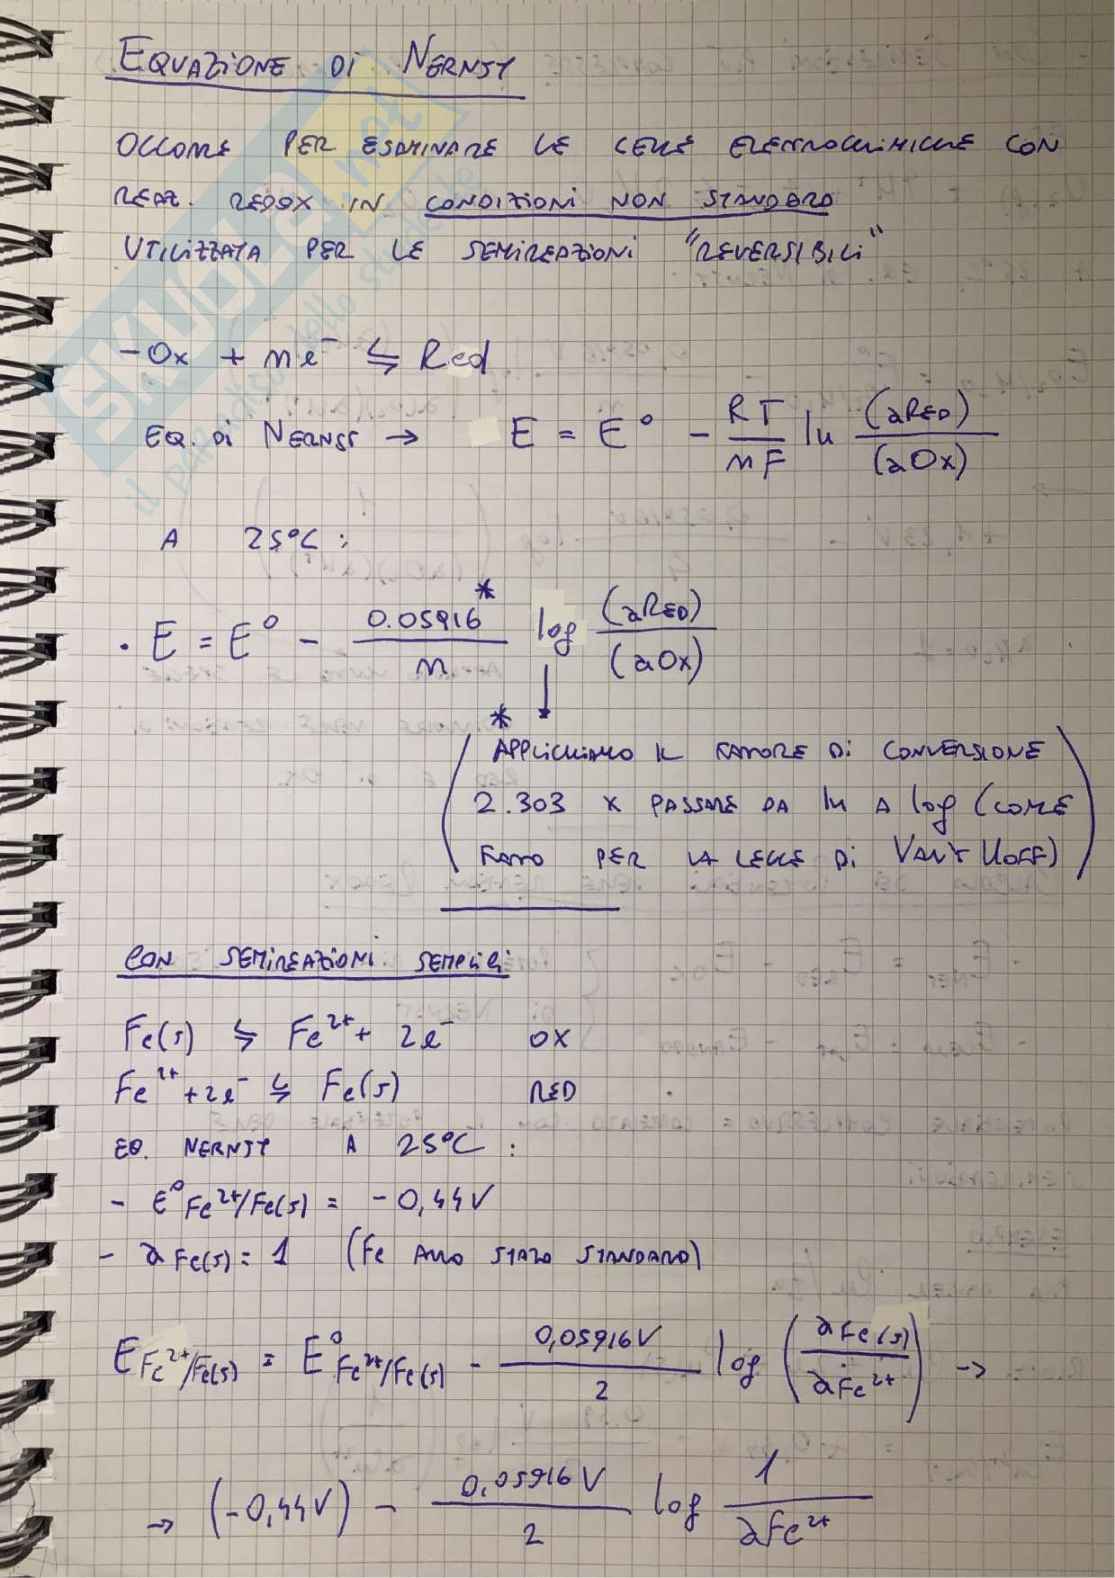 EQUAZIONE DI NERNST
OCCORRE PER ESAMINARE LE CELLE ELETTROCHIMICHE CON
REAZ. REDOX IN CONDIZIONI NON STANDARD
UTILIZZATA PER LE SEMIREAZIONI "REVERSIBILI"
-Ox + ne⁻ ⇆ Red
EQ. DI NERNST → E = E° - RT/nF ln (aRED)/(aOx)
A 25°C:
· E = E° - 0.05916*/n log (aRED)/(aOx)
* (APPLICHIAMO IL FATTORE DI CONVERSIONE
2.303 x PASSARE DA ln A log (COME
FATTO PER LA LEGGE DI VAN'T HOFF)
CON SEMIREAZIONI SEMPLICI
Fe(s) ⇆ Fe²⁺ + 2e⁻ OX
Fe²⁺ + 2e⁻ ⇆ Fe(s) RED
EQ. NERNST A 25°C:
- E°Fe²⁺/Fe(s) = -0,44V
- aFe(s) = 1 (Fe ALLO STATO STANDARD)
E Fe²⁺/Fe(s) = E° Fe²⁺/Fe(s) - 0,05916V/2 log (aFe(s)/aFe²⁺) →
→ (-0,44V) - 0,05916V/2 log 1/aFe²⁺
SKUOLA.net